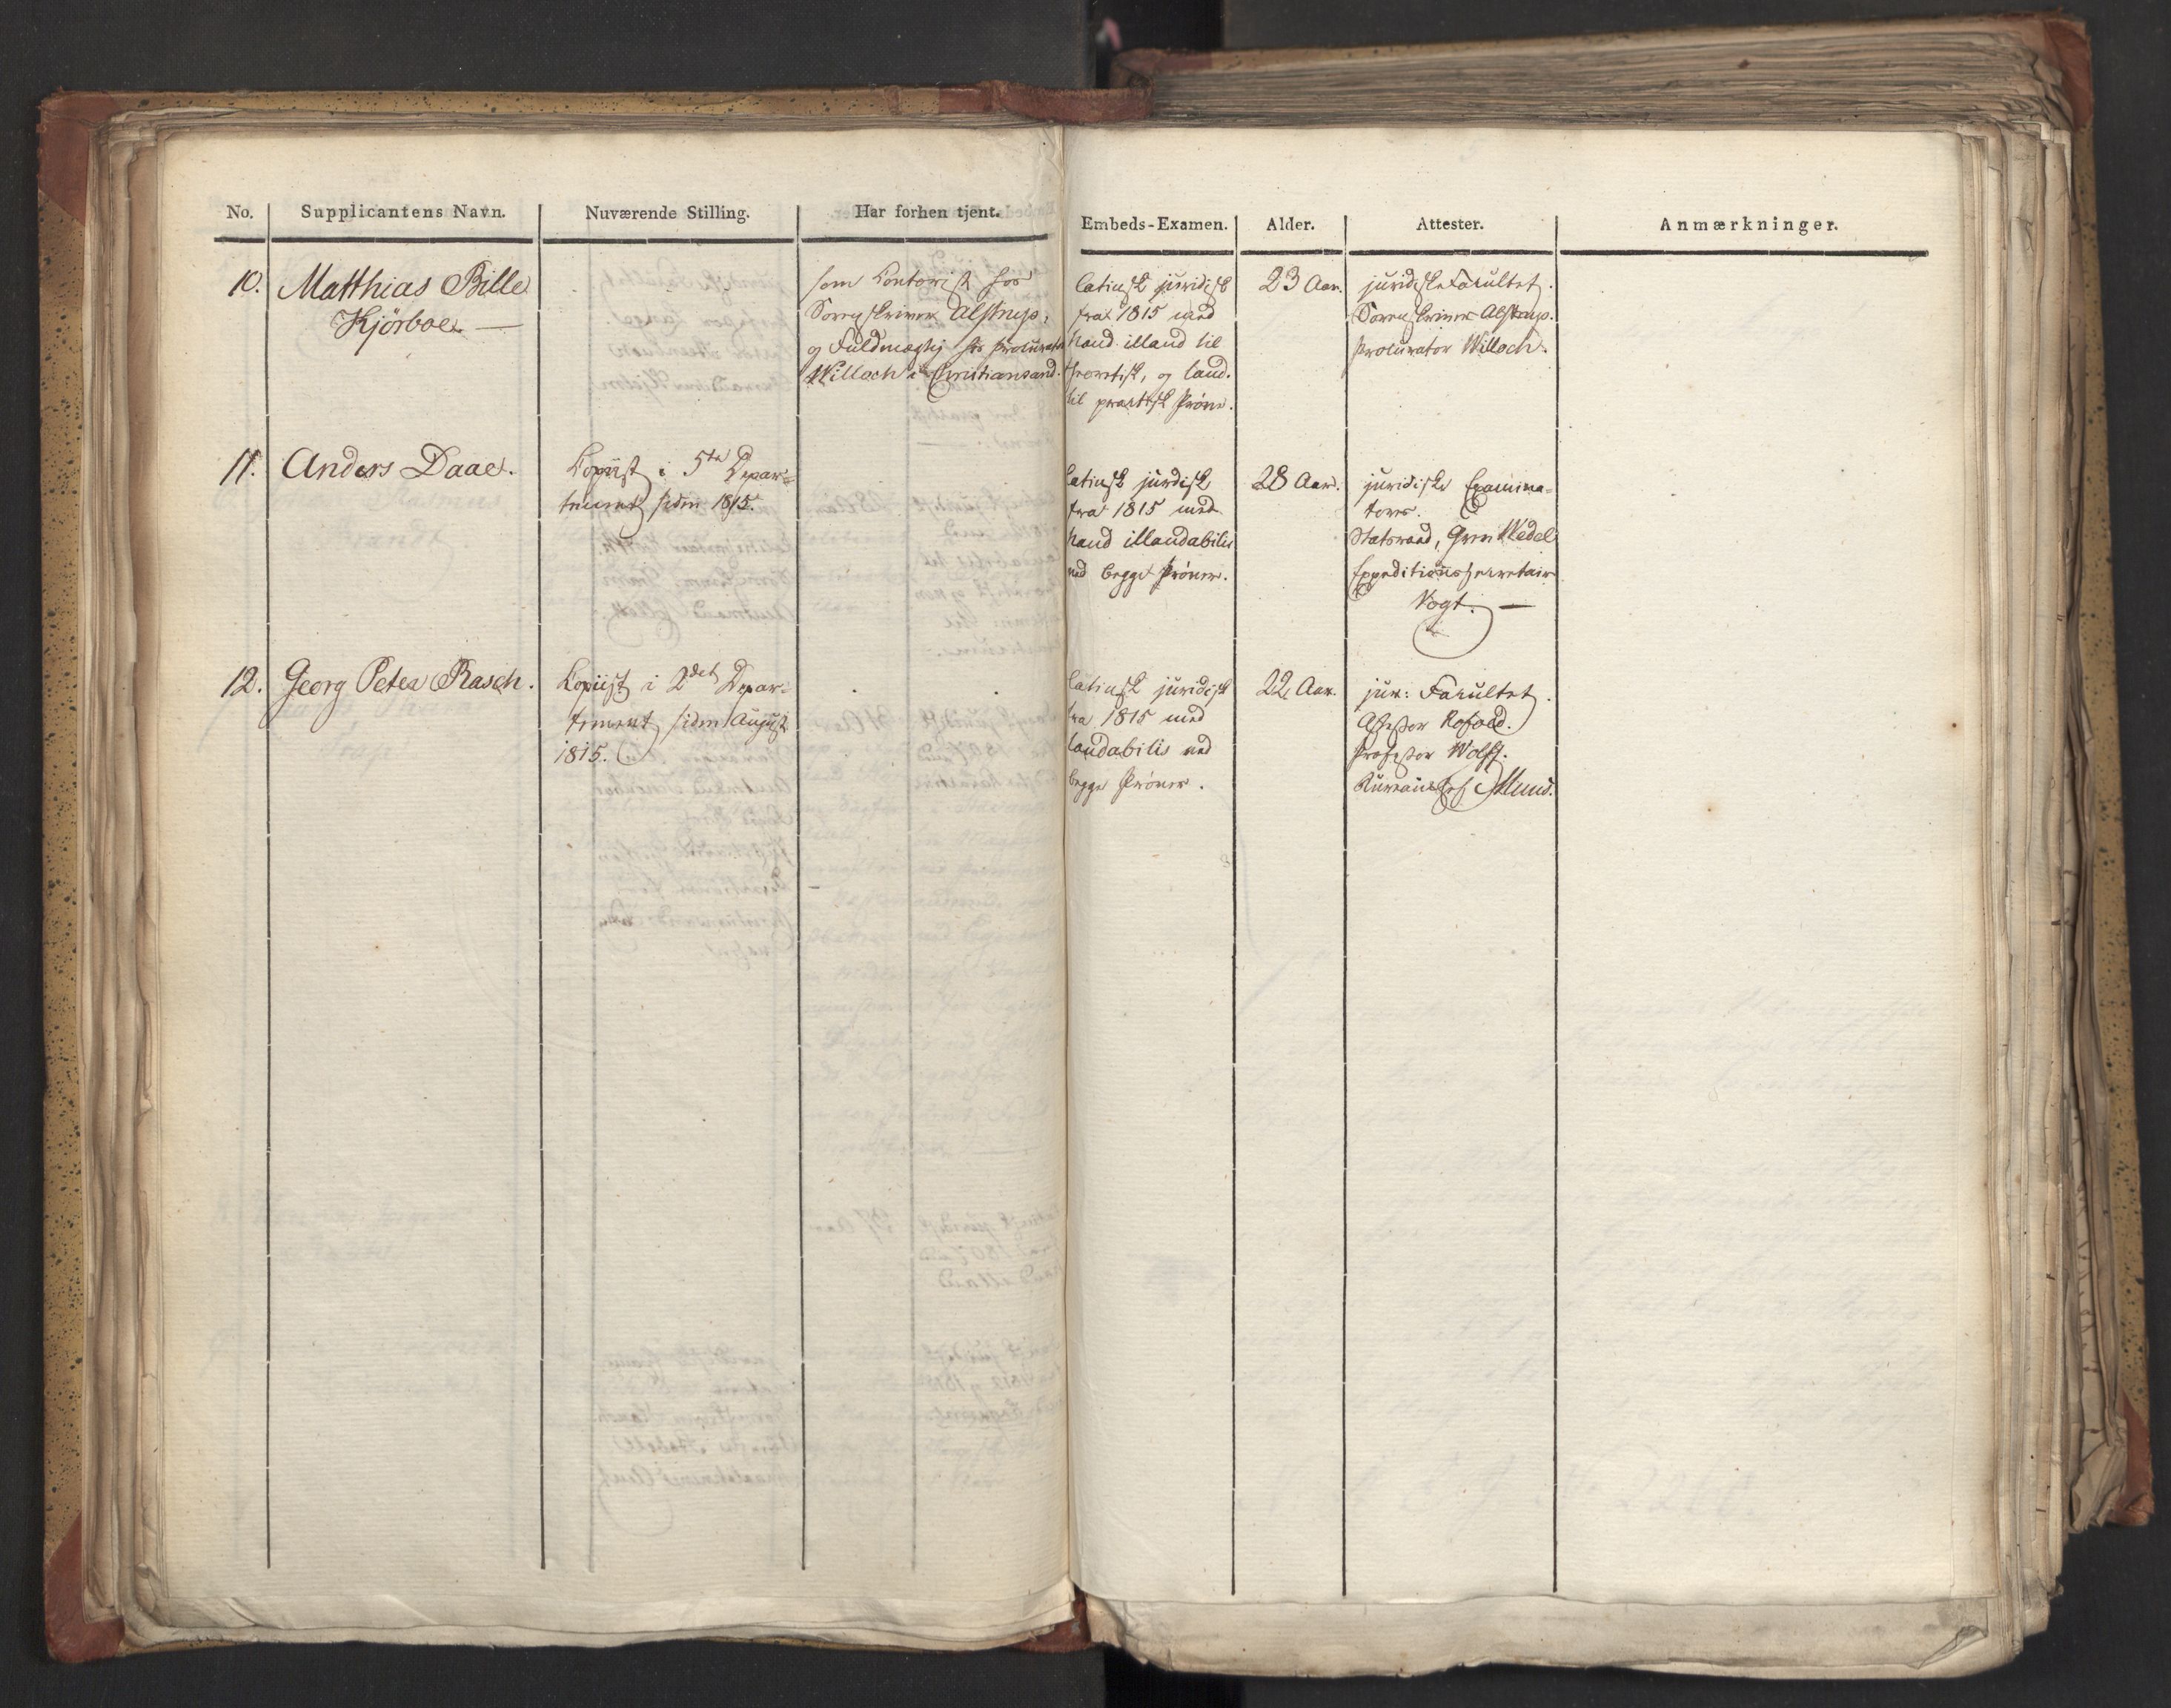 No.
Supplicantens Navn.
Nuværende Stilling.
Har forhen tjent.
Embeds-Examen.
Alder.
Attester.
Anmærkninger.
10.
Matthias Bille
Kjørboe. —
som Contorist hos
Sorenskriver Alstrup,
og Fuldmægtig hos Procurator
Willoch i Christiansand.
latinsk juridisk
fra 1815 med
haud illaud til
theoretisk, og laud.
til practisk Prøve.
23 Aar.
juridiske Facultet.
Sorenskriver Alstrup.
Procurator Willoch.
11.
Anders Daae.
Copiist i 5te Depar=
tement siden 1815.
latinsk juridisk
fra 1815 med
haud illaudabilis
ved begge Prøver.
28 Aar.
juridiske Examina=
torer.
Statsraad, Grev Wedel
Expeditionssecretair
Vogt. —
12.
Georg Peter Rasch.
Copiist i 2det Depar=
tement siden August
1815.
latinsk juridisk
fra 1815 med
laudabilis ved
begge Prøver.
22 Aar.
jur: Facultet.
Assessor Rofoed.
Professor Wolff.
Bureauchef Mund.